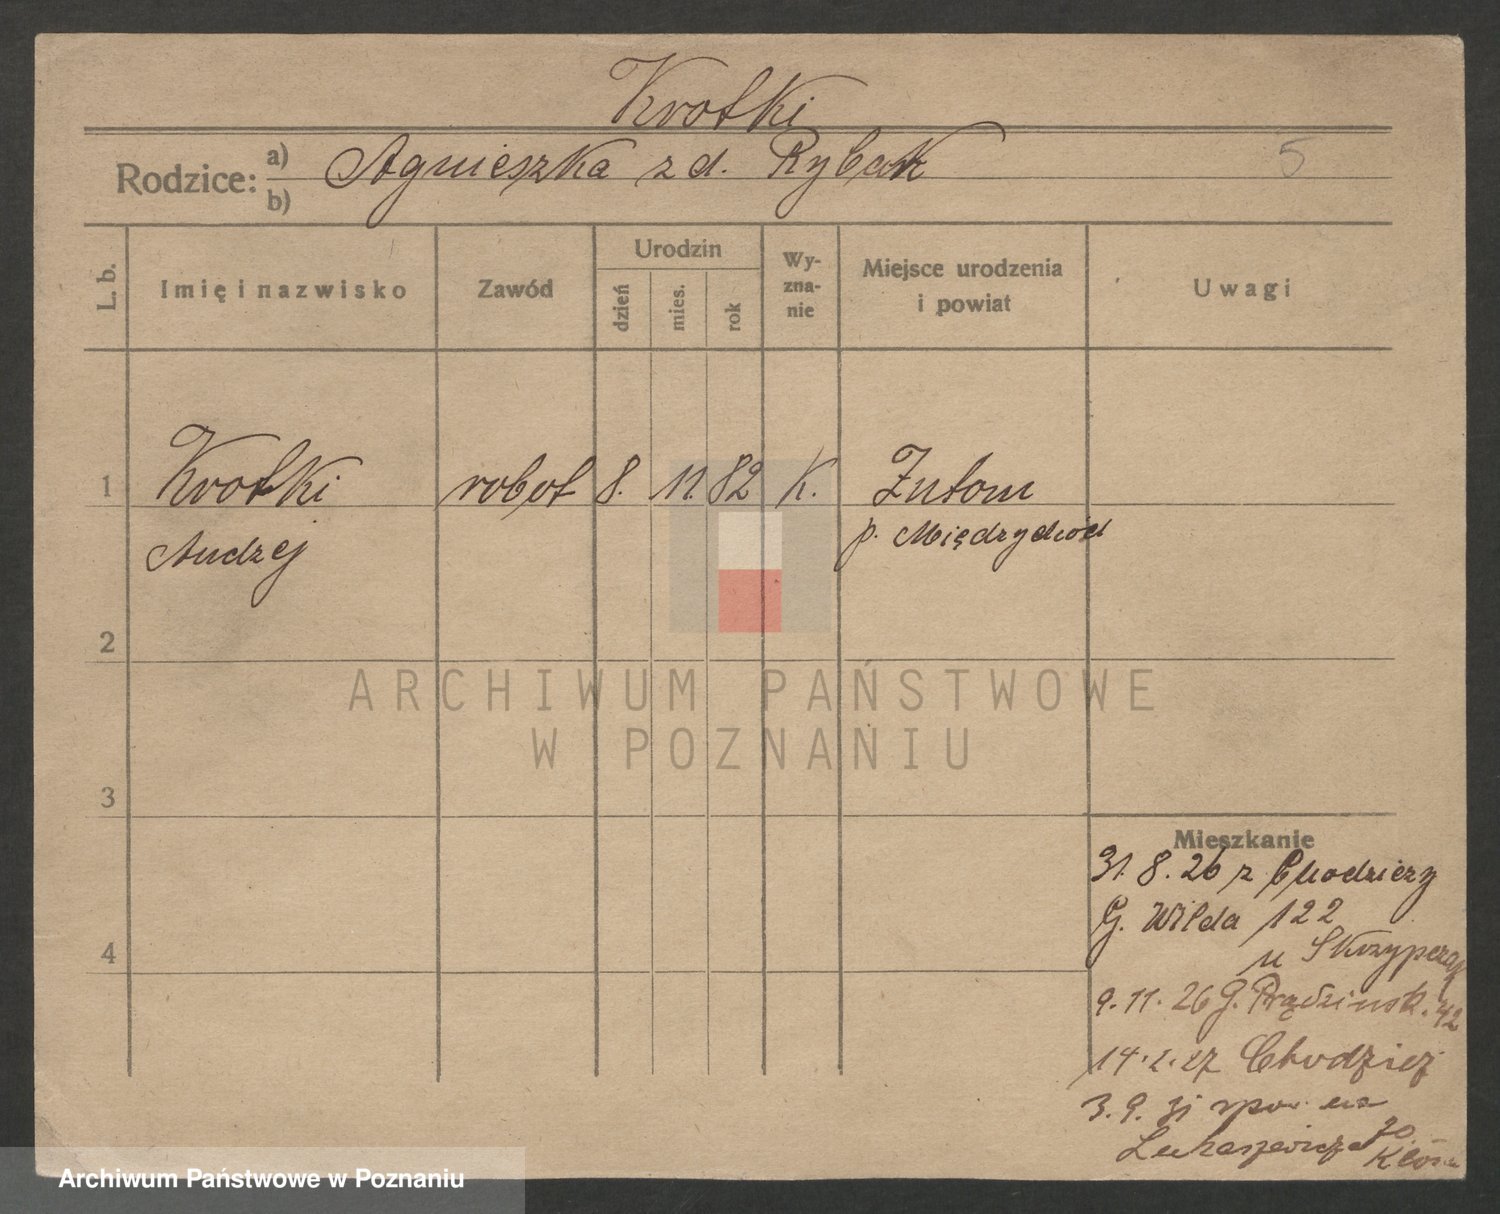 Krotki
Rodzice: a) Agnieszka z d. Rybak
b)
5
L. b.
Imię i nazwisko
Zawód
Urodzin
dzień
mies.
rok
Wy-
zna-
nie
Miejsce urodzenia
i powiat
Uwagi
1 Krotki robot 8. 11. 82 K. Zutom
Andrzej p. Międzychód
2
3
4
ARCHIWUM PAŃSTWOWE
W POZNANIU
Mieszkanie
31. 8. 26 z Chodzieży
G. Wilda 122
u
9. 11. 26 G. Prądzińsk. 42
14. 2. 27 Chodzież
3. 9. na
Łukaszewicza 30
Archiwum Państwowe w Poznaniu